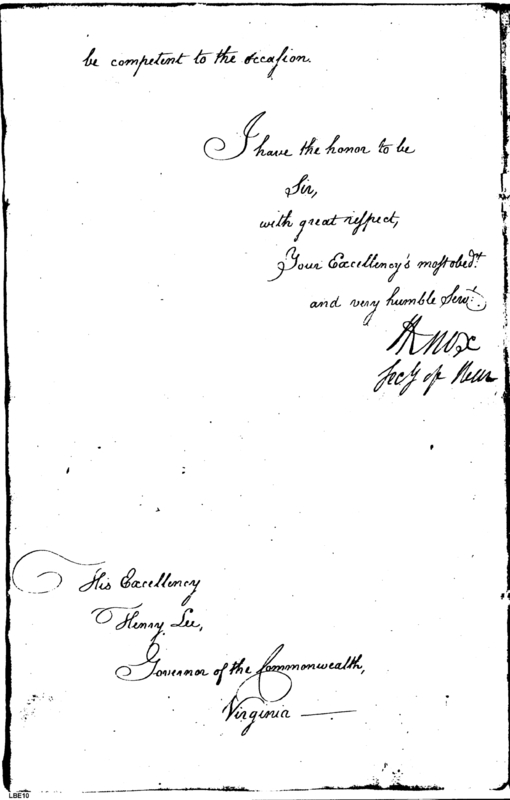 be competent to the occasion.
I have the honor to be
Sir,
with great respect,
Your Excellency's most obed.t
and very humble Serv.t
HKnox
Secy of War
His Excellency
Henry Lee,
Governor of the Commonwealth,
Virginia —
LBE10